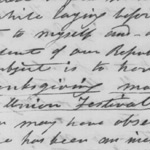 while laying before
to myself and
dent of our Repub
ubject is to have
anksgiving ma
Union Festival
may have obse
e has been an in